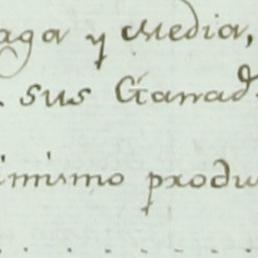 aga y Media,
. sus Ganad.ˢ
inismo produ